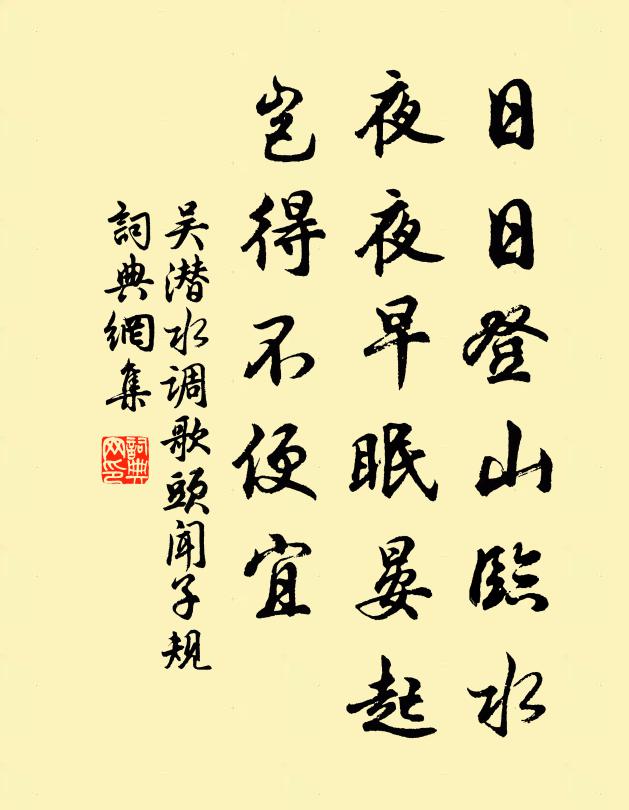 日日登山臨水
夜夜早眠晏起
岂得不便宜
吴潜水调歌頭闻子规
詞典網集
詞典網印